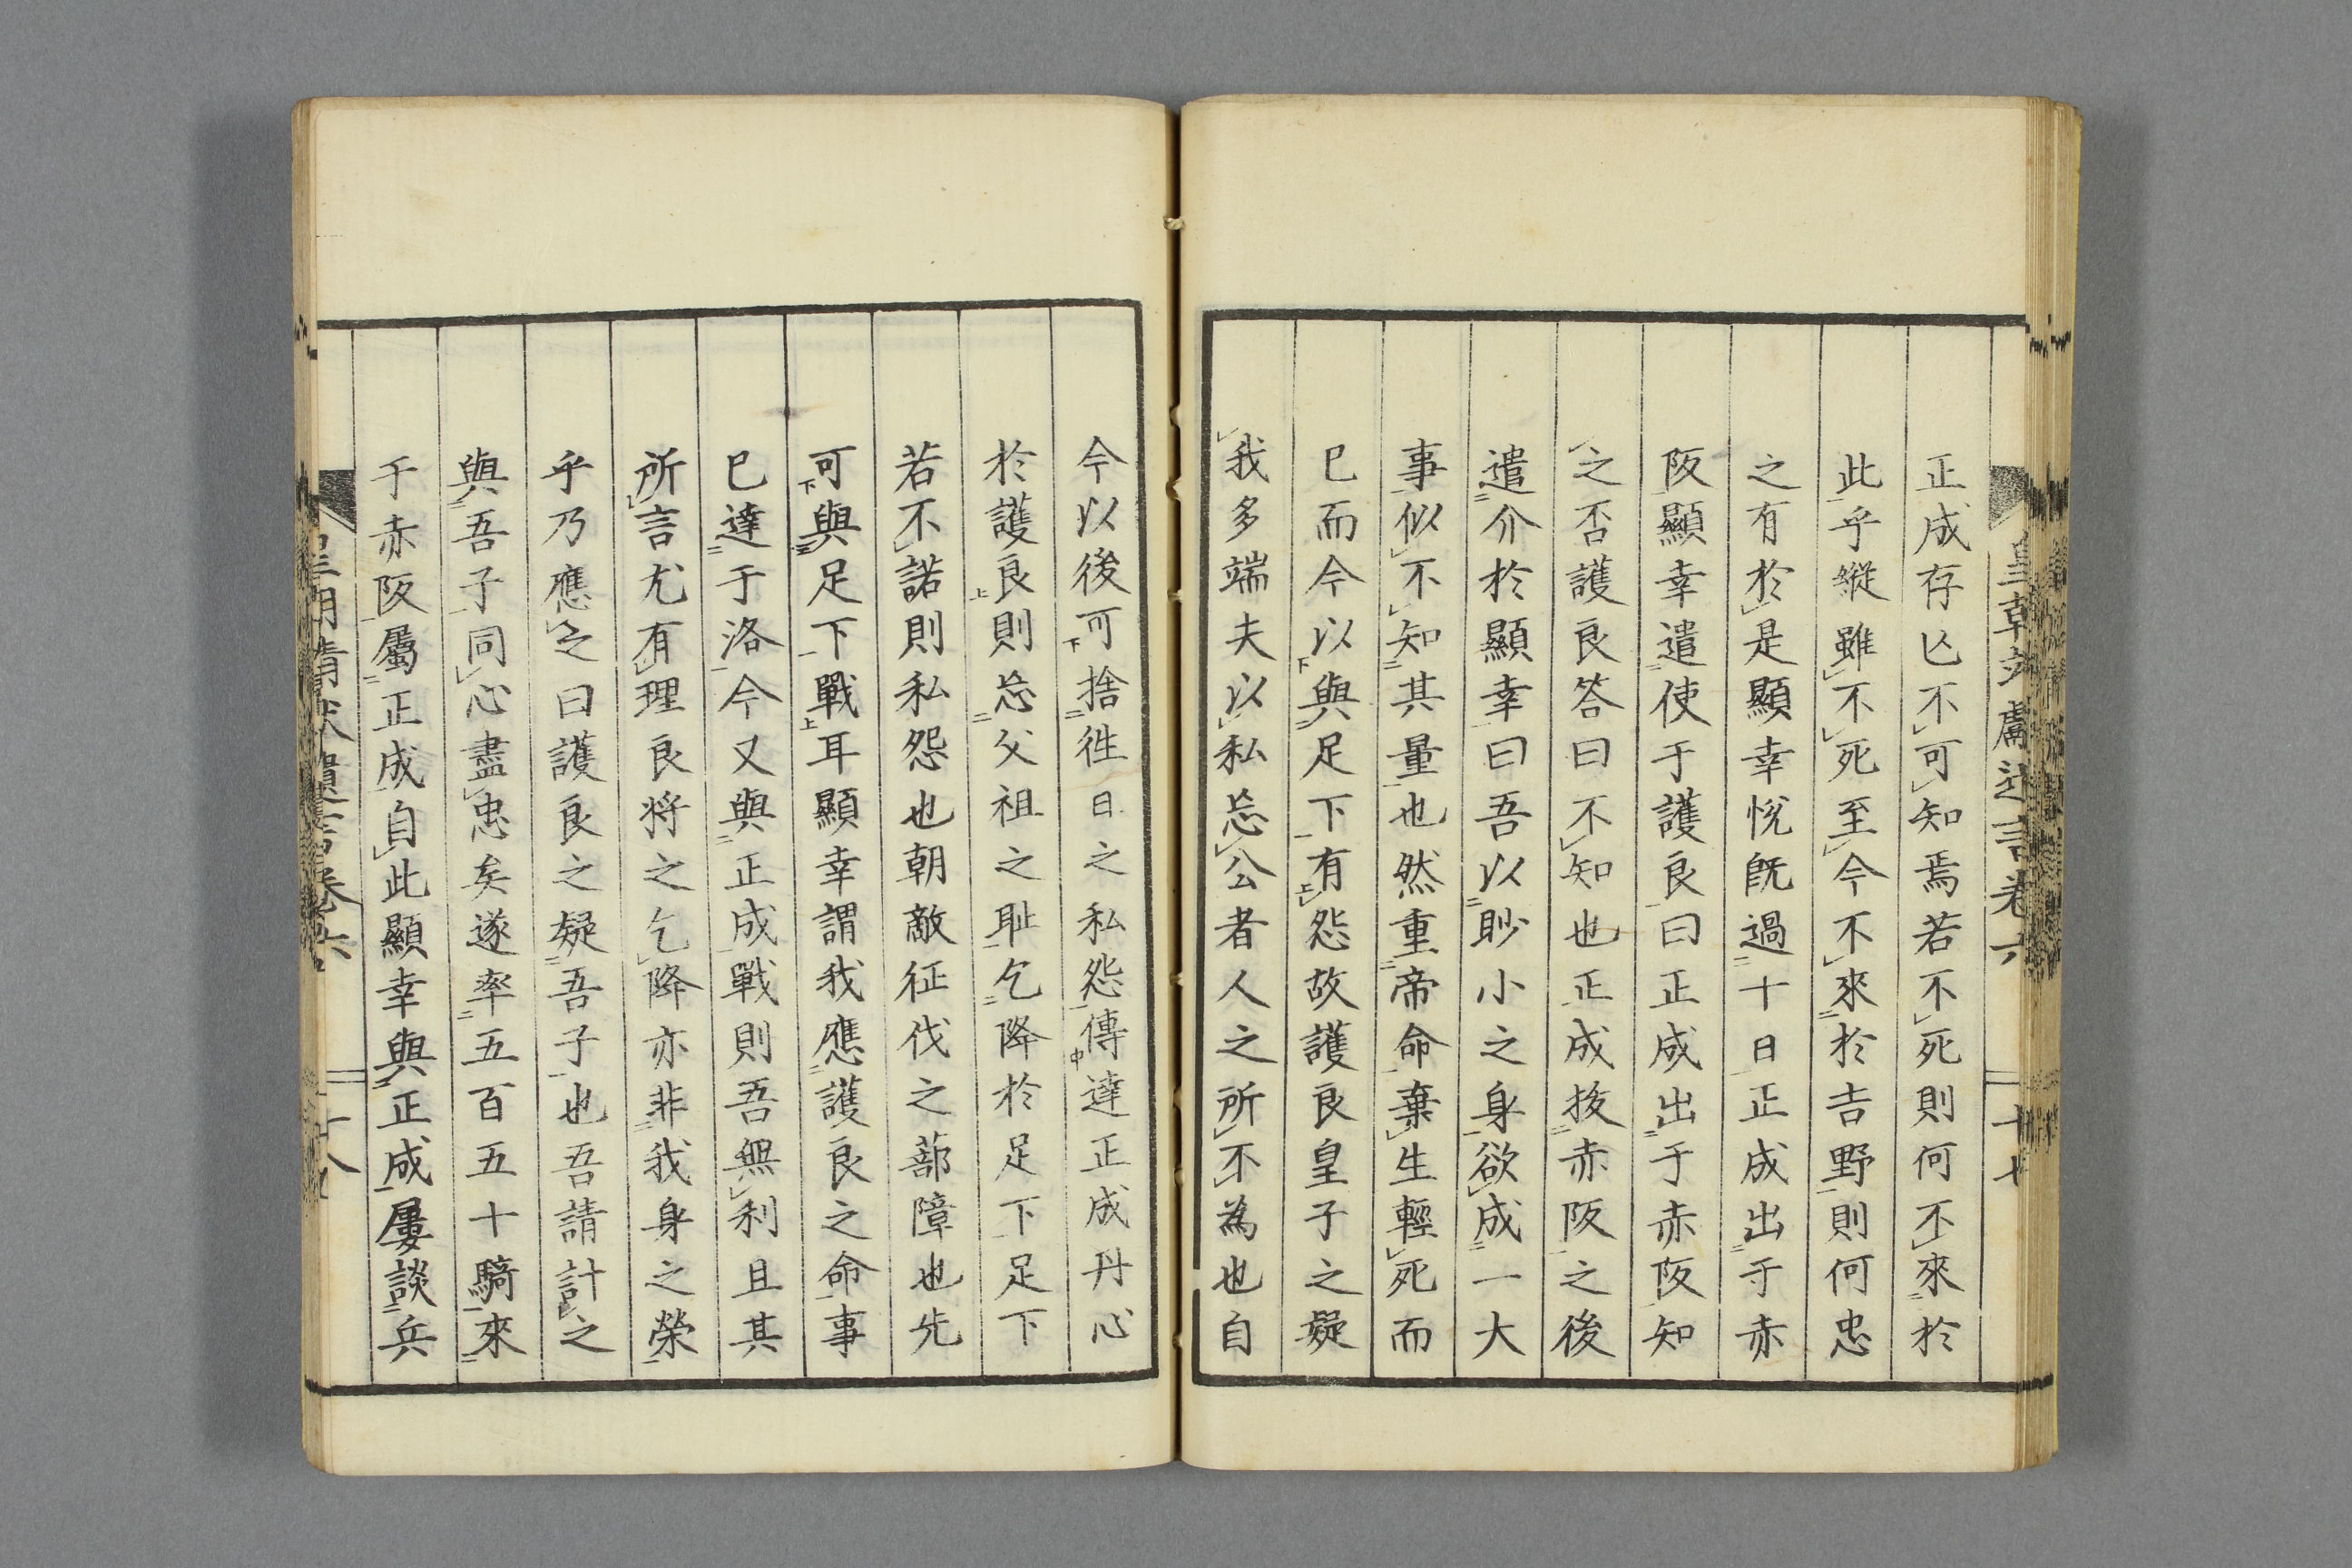 正成存亾不可知焉若不死則何不來於
此乎縱雖不死至今不來於吉野則何忠
之有於是顯幸悅既過十日正成出于赤
阪顯幸遣使于護良曰正成出于赤阪知
之否護良答曰不知也正成拔赤阪之後
遣介於顯幸曰吾以眇小之身欲成一大
事似不知其量也然重帝命棄生輕死而
已而今以與足下有怨故護良皇子之疑
我多端夫以私忘公者人之所不為也自
今以後可捨徃日之私怨傳達正成丹心
於護良則忘父祖之耻乞降於足下足下
若不諾則私怨也朝敵征伐之蔀障也先
可與足下戰耳顯幸謂我應護良之命事
已達于洛今又與正成戰則吾無利且其
所言尤有理良将之乞降亦非我身之榮
乎乃應之曰護良之疑吾子也吾請計之
與吾子同心盡忠矣遂率五百五十騎來
于赤阪屬正成自此顯幸與正成屢談兵